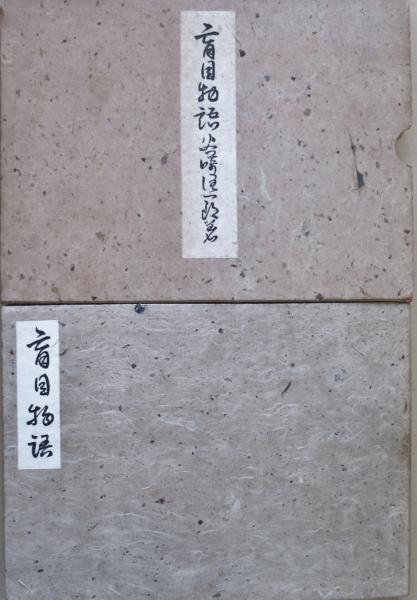 盲目物語 谷崎潤一郎著
盲目物語